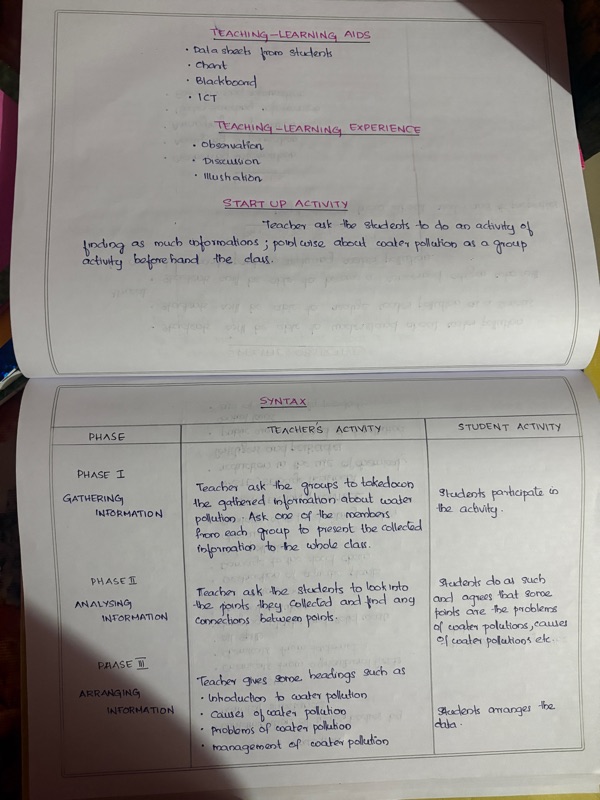 TEACHING-LEARNING AIDS
• Data sheets from students
• Chart
• Blackboard
• ICT
TEACHING-LEARNING EXPERIENCE
• Observation
• Discussion
• Illustration
START UP ACTIVITY
Teacher ask the students to do an activity of
finding as much informations ; pointwise about water pollution as a group
activity beforehand the class.
SYNTAX
PHASE
TEACHER'S ACTIVITY
STUDENT ACTIVITY
PHASE I
GATHERING
INFORMATION
Teacher ask the groups to takedown
the gathered information about water
pollution. Ask one of the members
from each group to present the collected
information to the whole class.
Students participate in
the activity.
PHASE II
ANALYSING
INFORMATION
Teacher ask the students to look into
the points they collected and find any
connections between points.
Students do as such
and agrees that some
points are the problems
of water pollutions, causes
of water pollutions etc.
PHASE III
ARRANGING
INFORMATION
Teacher gives some headings such as
• Introduction to water pollution
• causes of water pollution
• problems of water pollution
• management of water pollution
Students arranges the
data.